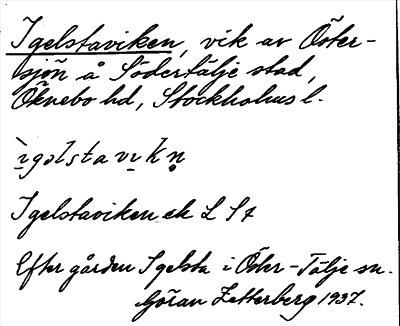 Igelstaviken, vik av Öster-
sjön å Södertälje stad,
Öknebo hd, Stockholms l.
ìgəlstavikn̥
Igelstaviken ek L S4
Efter gården Igelsta i Öster-Tälje sn.
Göran Zetterberg 1937.